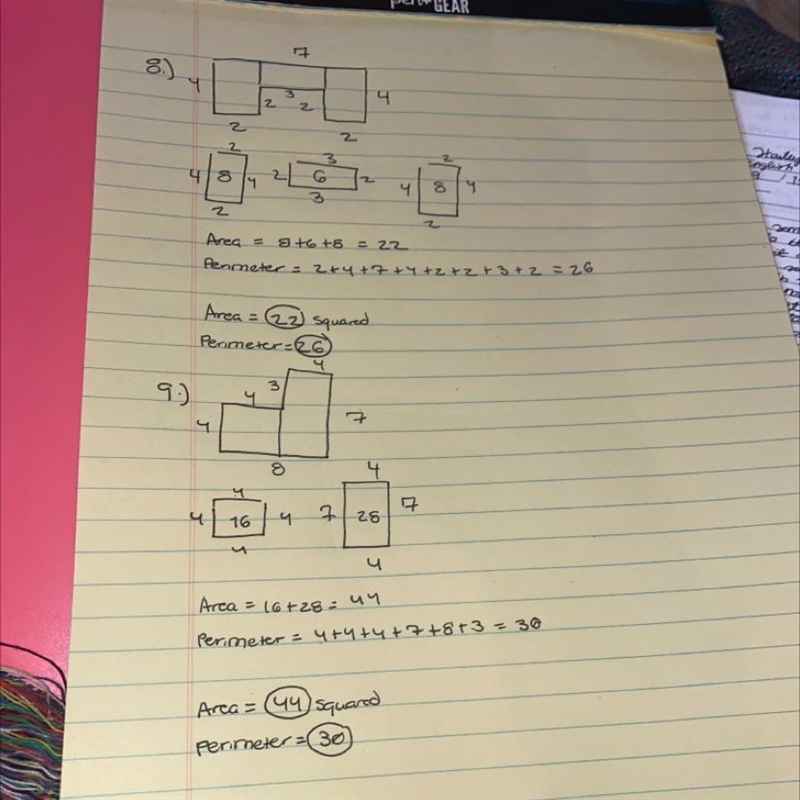 GEAR
8.)
7
4
4
2
3
2
2
2
2
3
2
4 8 4
2 6 2
4 8 4
2
3
2
Area = 8+6+8 = 22
Perimeter = 2+4+7+4+2+2+3+2 = 26
Area = 22 squared
Perimeter = 26
9.)
4
3
4
4
7
8
4
4
4 16 4
7 28 7
4
4
Area = 16+28 = 44
Perimeter = 4+4+4+7+8+3 = 30
Area = 44 squared
Perimeter = 30
English